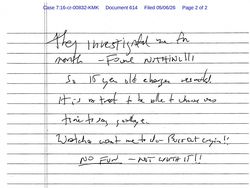 Case 7:16-cr-00832-KMK Document 614 Filed 05/06/26 Page 2 of 2
They investigated me for
month - Found NOTHING!!!
So 15 year old charges resulted.
It is a treat to be able to choose one's
time to say goodbye.
Watcha want me to do - Burst out cryin!!
NO FUN - NOT WORTH IT!!